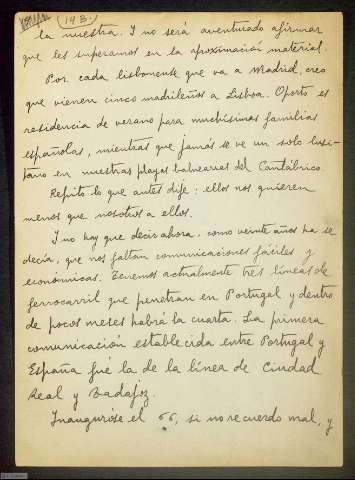 (143)
la nuestra. Y no será aventurado afirmar
que les superamos en la aproximación material.
Por cada lisbonense que va a Madrid, creo
que vienen cinco madrileños a Lisboa. Oporto es
residencia de verano para muchísimas familias
españolas, mientras que jamás se ve un solo lusi-
tano en nuestras playas balnearias del Cantábrico.
Repito lo que antes dije: ellos nos quieren
menos que nosotros a ellos.
Y no hay que decir ahora, como veinte años ha se
decía, que nos faltan comunicaciones fáciles y
económicas. Tenemos actualmente tres líneas de
ferrocarril que penetran en Portugal y dentro
de pocos meses habrá la cuarta. La primera
comunicación establecida entre Portugal y
España fué la de la línea de Ciudad
Real y Badajoz.
Inauguróse el 66, si no recuerdo mal, y